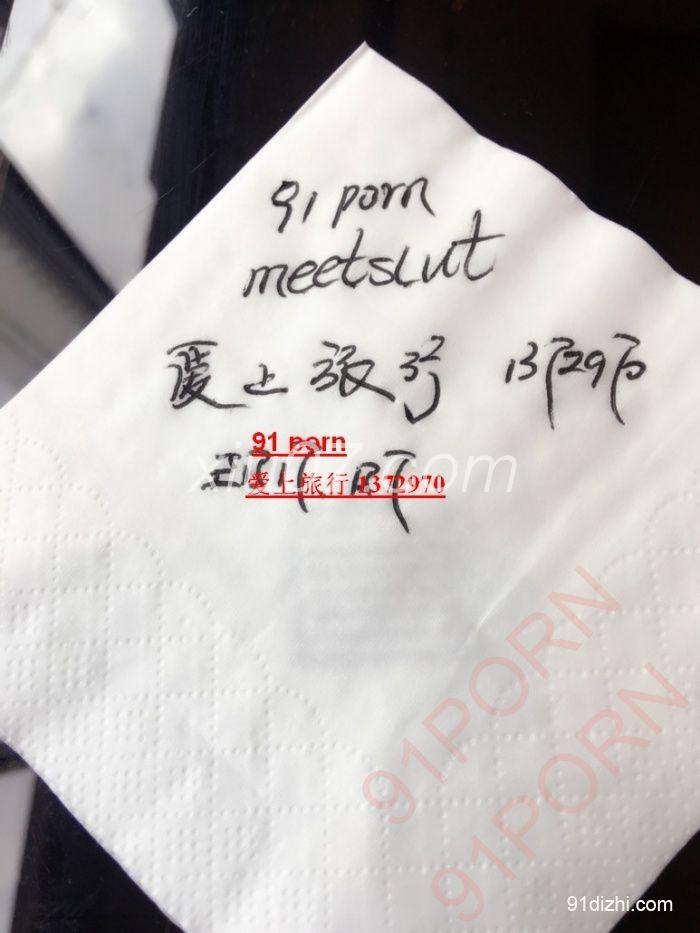 91 porn
meetslut
爱上旅行 1372970
91 porn
爱上旅行 1372970
91PORN
91PORN
91dizhi.com